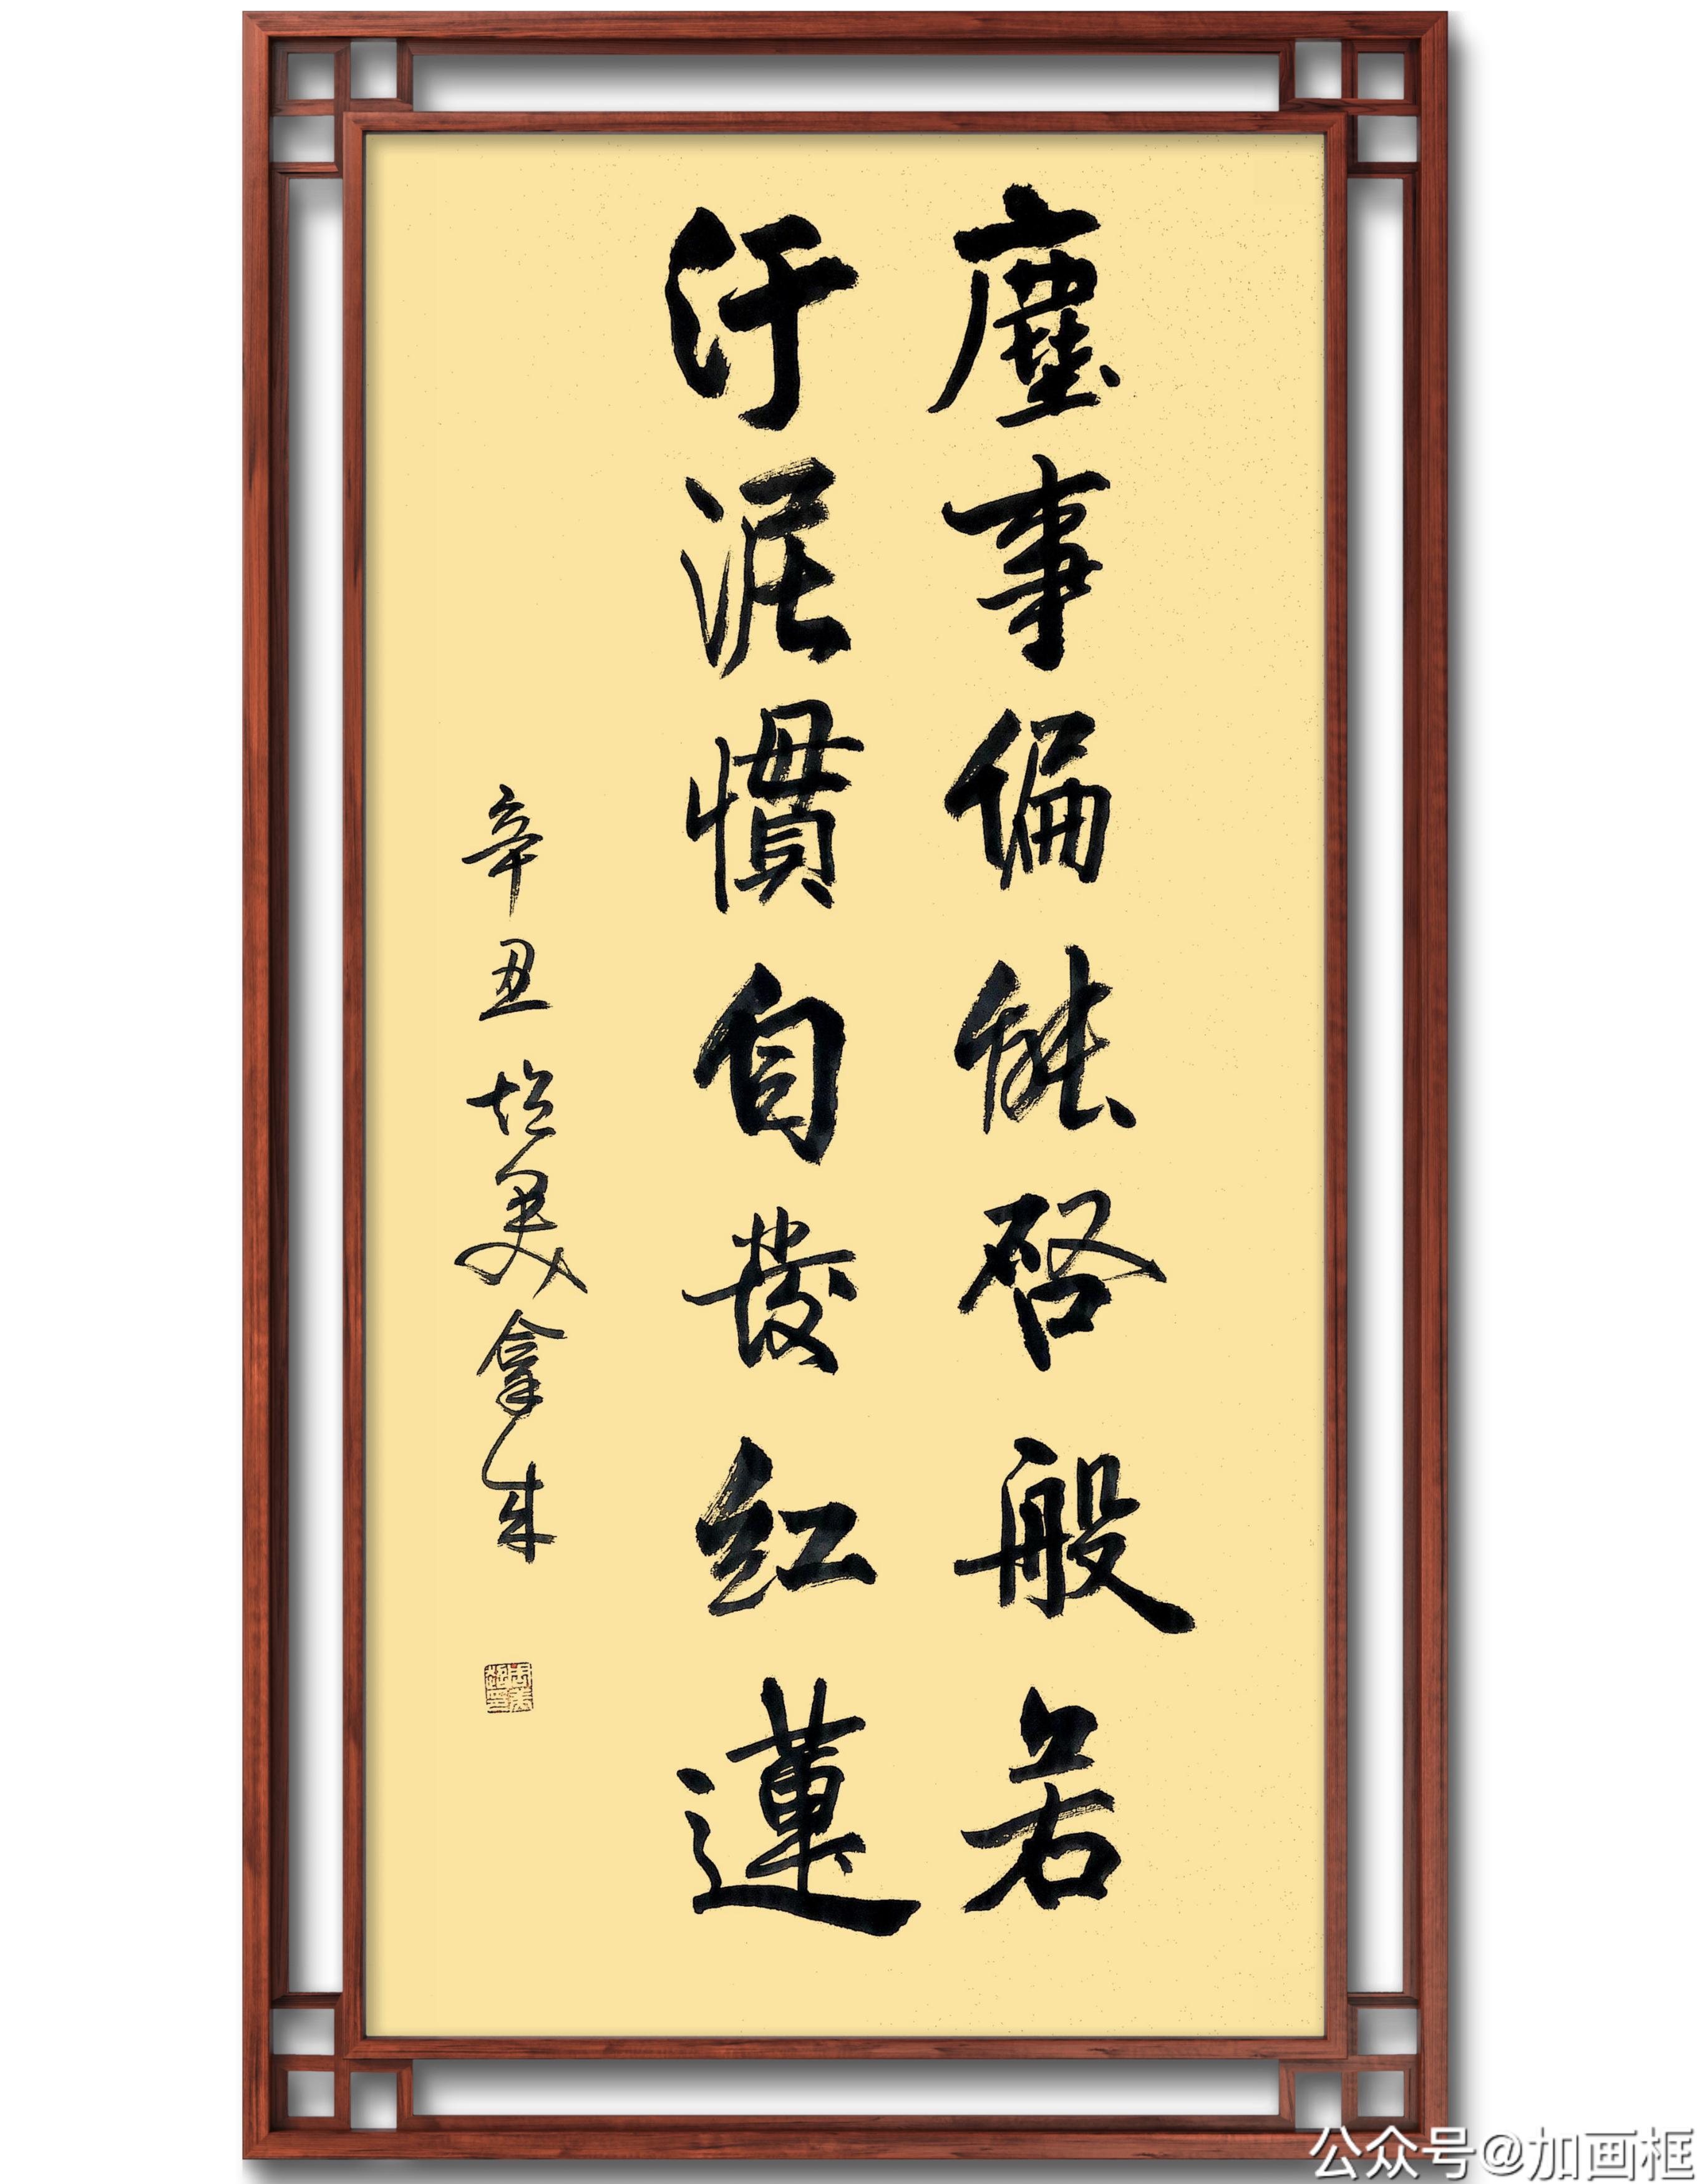 塵事偏能啓般若
汙泥慣自發紅蓮
辛丑 培美拿朱
公众号@加画框